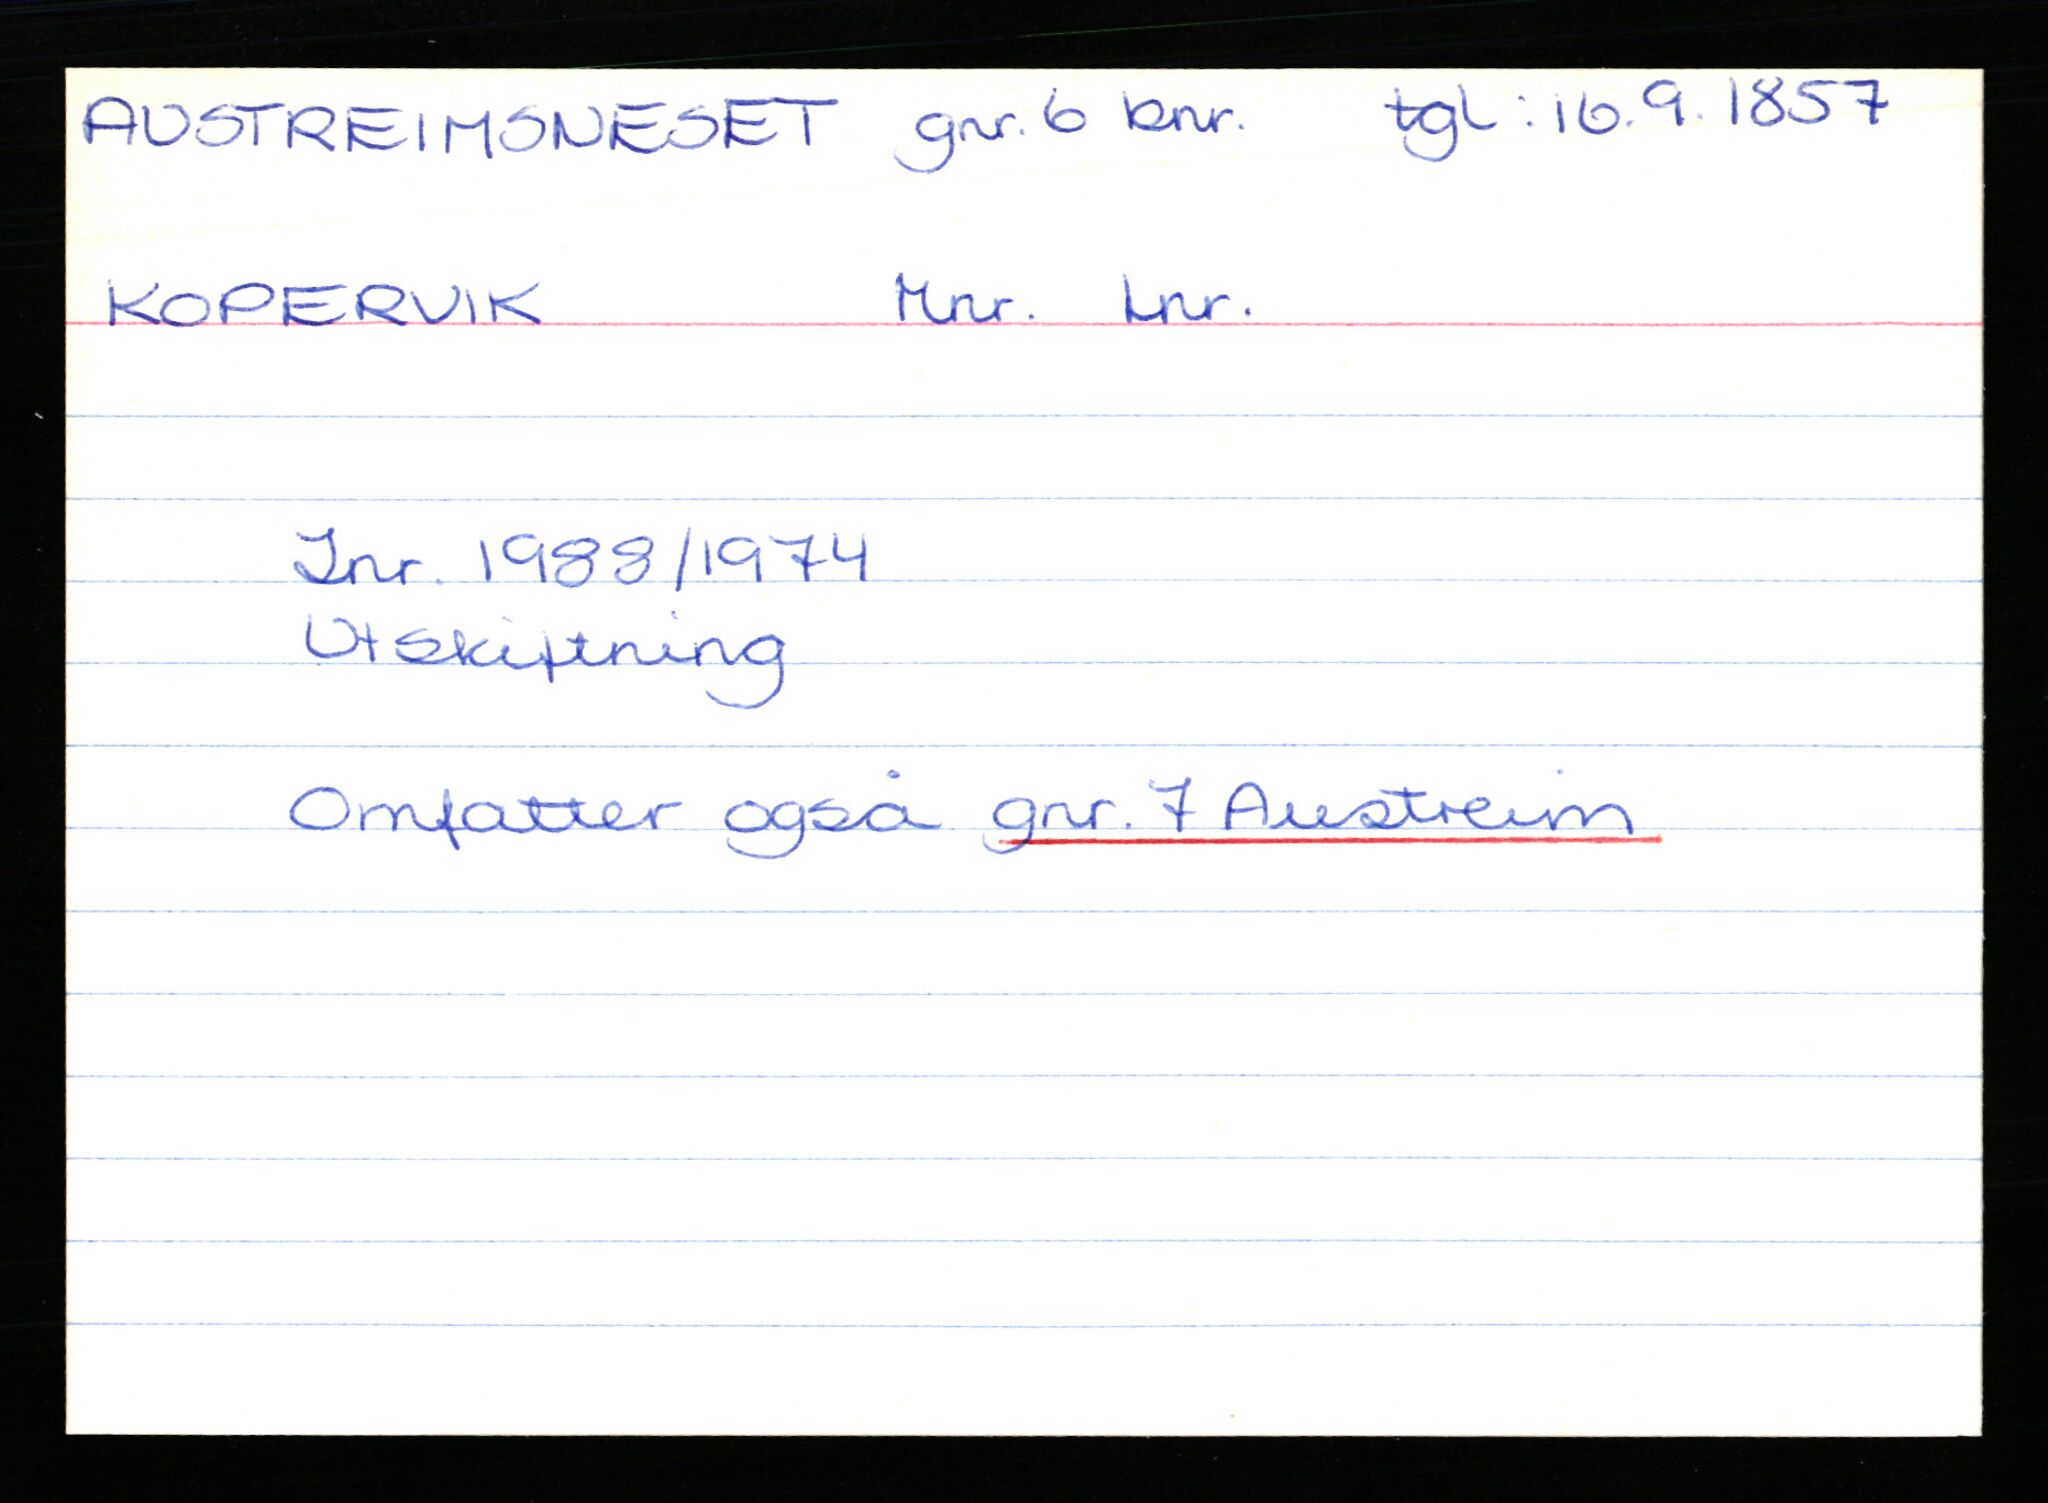 AUSTREIMSNESET gnr. 6 bnr. tgl: 16.9.1857
KOPERVIK Mnr. Lnr.
Jnr. 1988/1974
Utskiftning
Omfatter også gnr. 7 Austreim